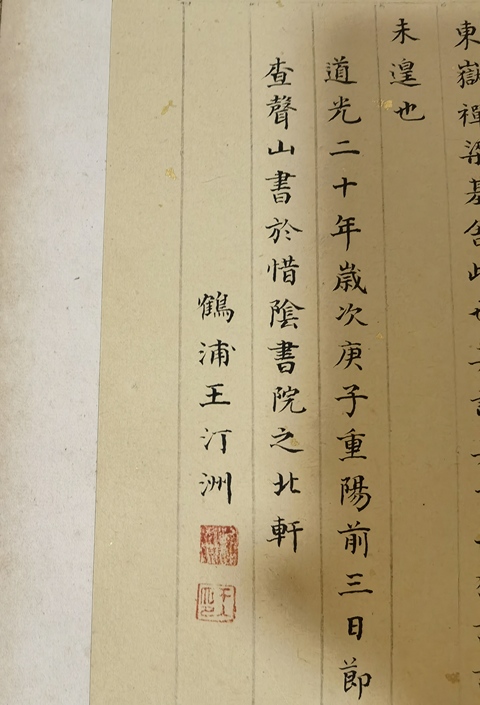 東嶽禪梁基舍此也
未遑也
道光二十年歲次庚子重陽前三日節
查聲山書於惜陰書院之北軒
鶴浦王汀洲